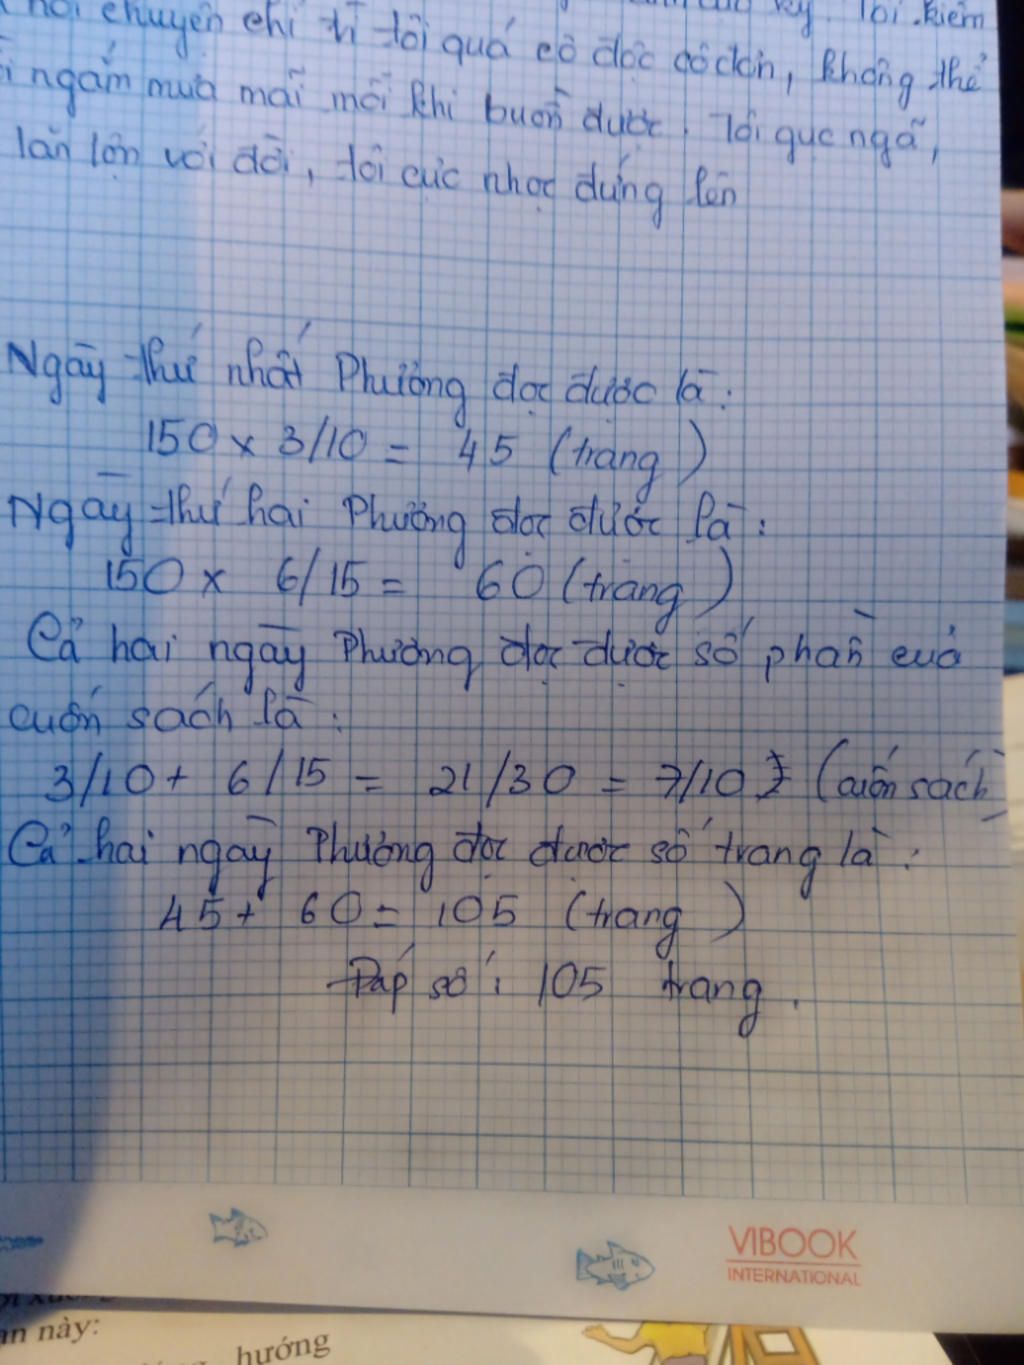 chuyện chi tì tôi quá cô độc cô đơn, không thể
ngắm mưa mãi mỗi khi buồn được. Tôi gục ngã,
lăn lộn với đời, tôi cực nhọc đứng lên
Ngày thứ nhất Phương đọc được là:
150 x 3/10 = 45 (trang)
Ngày thứ hai Phương đọc được là:
150 x 6/15 = 60 (trang)
Cả hai ngày Phương đọc được số phần của
cuốn sách là:
3/10 + 6/15 = 21/30 = 7/10 (cuốn sách)
Cả hai ngày Phương đọc được số trang là:
45 + 60 = 105 (trang)
Đáp số: 105 trang.
VIBOOK
INTERNATIONAL
này:
hướng